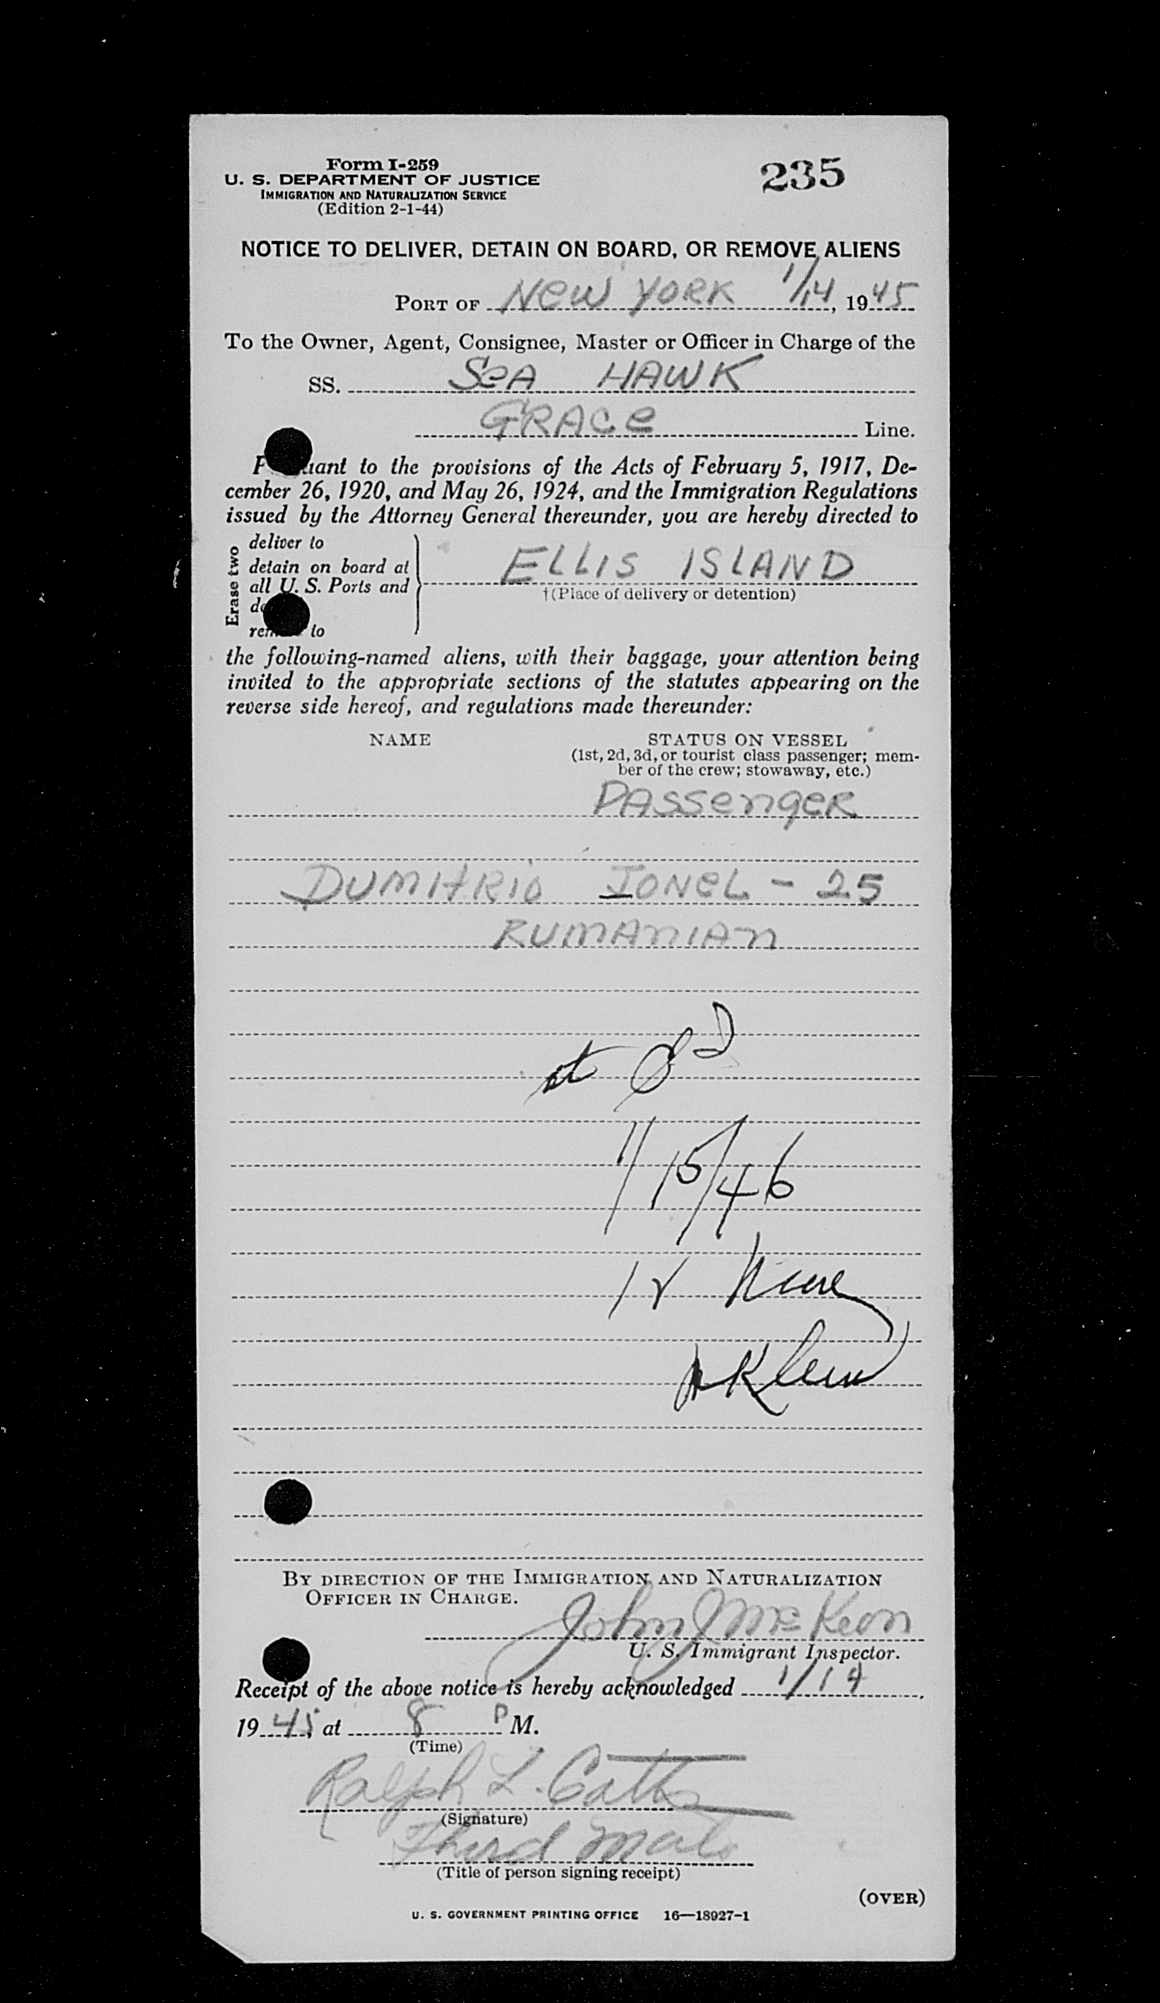 Form I-259
U. S. DEPARTMENT OF JUSTICE
IMMIGRATION AND NATURALIZATION SERVICE
(Edition 2-1-44)
235
NOTICE TO DELIVER, DETAIN ON BOARD, OR REMOVE ALIENS
PORT OF NEW YORK 1/14, 1945
To the Owner, Agent, Consignee, Master or Officer in Charge of the
SS. SEA HAWK
GRACE Line.
to the provisions of the Acts of February 5, 1917, De-
cember 26, 1920, and May 26, 1924, and the Immigration Regulations
issued by the Attorney General thereunder, you are hereby directed to
Erase two
deliver to
detain on board at
all U. S. Ports and
to
ELLIS ISLAND
†(Place of delivery or detention)
the following-named aliens, with their baggage, your attention being
invited to the appropriate sections of the statutes appearing on the
reverse side hereof, and regulations made thereunder:
NAME STATUS ON VESSEL
(1st, 2d, 3d, or tourist class passenger; mem-
ber of the crew; stowaway, etc.)
PASSENGER
DUMITRIO IONEL - 25
RUMANIAN
1/15/46
Klein
BY DIRECTION OF THE IMMIGRATION AND NATURALIZATION
OFFICER IN CHARGE.
John J McKeon
U. S. Immigrant Inspector.
Receipt of the above notice is hereby acknowledged 1/14,
1945 at 8 P M.
(Time)
Ralph L.
(Signature)
Third Mate
(Title of person signing receipt)
(OVER)
U. S. GOVERNMENT PRINTING OFFICE 16—18927-1